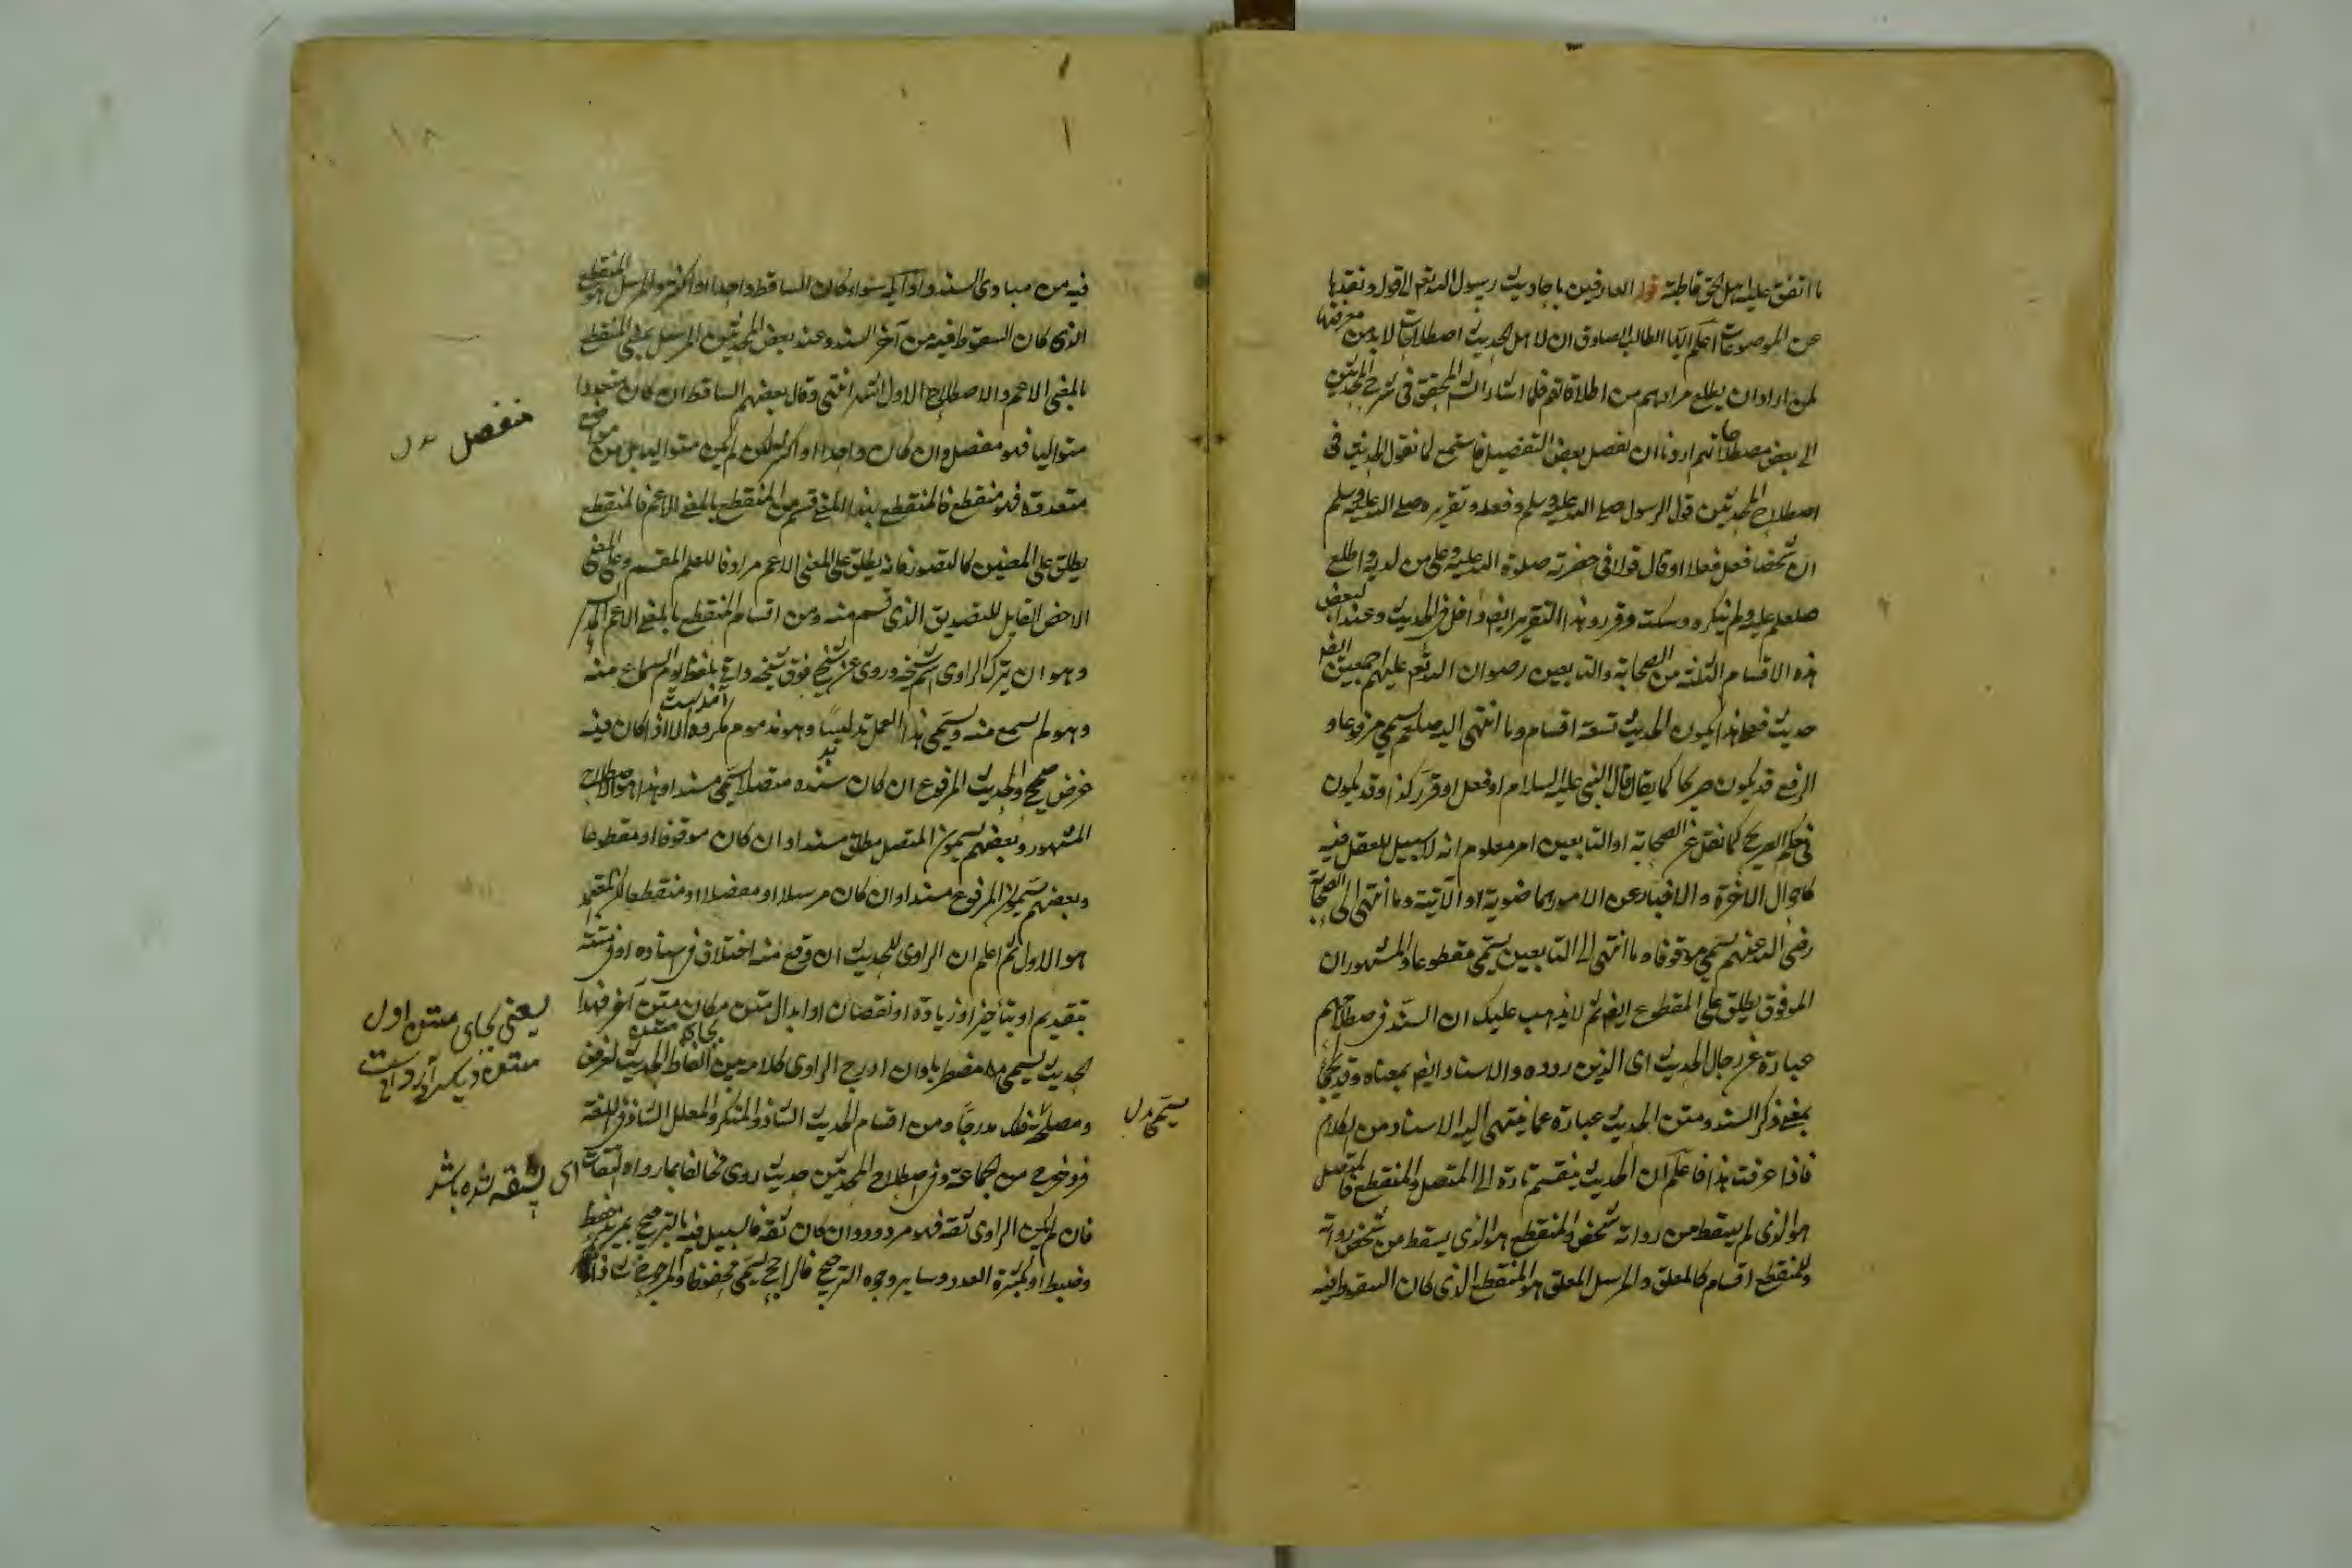 ما اتفق عليه اهل الحق قاطبة قوله العارفين باحاديث رسول الله تعم الى قوله ونقدها
عن الموضوعات اعلم ايها الطالب الصادق ان لاهل الحديث اصطلاحات لا بد من معرفتها
لمن اراد ان يطلع مرادهم من اطلاقاتهم فلما اشار الش المحقق فى شرح الحديثين
الى بعض مصطلحاتهم اردنا ان نفصل بعض التفصيل فاستمع لما نقول الحديث فى
اصطلاح المحدثين قول الرسول صلى الله عليه وسلم وفعله وتقريره صلى الله عليه وسلم
ان شخصا فعل فعلا او قال قولا فى حضرته صلوة الله عليه وعلى من لديه واطلع
صلعم عليه ولم ينكره وسكت وقرر وهذا التقرير ايض داخل فى الحديث وعند البعض
هذه الاقسام الثلثة من الصحابة والتابعين رضوان الله تعم عليهم اجمعين ايض
حديث فعلى هذا يكون الحديث تسعة اقسام وما انتهى اليه صلعم يسمى مرفوعا و
الرفع قد يكون صريحا كما يقال قال النبى عليه السلام او فعل او قرر كذا وقد يكون
فى حكم الصريح كما نقل عن الصحابة او التابعين امر معلوم انه لا سبيل للعقل فيه
كاحوال الاخرة والاخبار عن الامور الماضوية او الآتية وما انتهى الى الصحابة
رضى الله عنهم يسمى موقوفا وما انتهى الى التابعين يسمى مقطوعا والمشهور ان
الموقوف يطلق على المقطوع ايض ثم لا يذهب عليك ان السند فى اصطلاحهم
عبارة عن رجال الحديث اى الذين رووه والاسناد ايض بمعناه وقد يجئ
بمعنى ذكر السند ومتن الحديث عبارة عما ينتهى اليه الاسناد من الكلام
فاذا عرفت هذا فاعلم ان الحديث ينقسم تارة الى المتصل والمنقطع فالمتصل
هو الذى لم يسقط من رواته شخص والمنقطع هو الذى يسقط من شخص رواته
وللمنقطع اقسام كالمعلق والمرسل المعلق هو المنقطع الذى كان السقوط فيه
فيه من مبادى السند واوائله سواء كان الساقط واحدا او اكثر والمرسل هو المنقطع
الذى كان السقوط فيه من آخر السند وعند بعض المحدثين المرسل بمعنى المنقطع
بالمعنى الاعم والاصطلاح الاول اشهر انتهى وقال بعضهم الساقط ان كان متعددا
متواليا فهو مفصل وان كان واحدا او اكثر لكن لم يكن متواليا بل من مواضع
متعددة فهو منقطع فالمنقطع بهذا المعنى قسم من المنقطع بالمعنى الاعم فالمنقطع
يطلق على المعنيين كالتصور فانه يطلق على المعنى الاعم مرادفا للعلم المقسم وعلى المعنى
الاخص القابل للتصديق الذى قسم منه ومن اقسام المنقطع بالمعنى الاعم المدلس
وهو ان يترك الراوى اسم شيخه وروى عن شيخ فوق شيخه واتى بلفظ يوهم السماع منه
وهو لم يسمع منه ويسمى هذا العمل تدليسا وهو مذموم مكروه الا اذا كان فيه
غرض صحيح والحديث المرفوع ان كان سنده متصلا يسمى مسندا وهذا هو الاصطلاح
المشهور وبعضهم يسمون المتصل مطلق مسندا وان كان موقوفا او مقطوعا
وبعضهم يسمون المرفوع مسندا وان كان مرسلا او معضلا او منقطعا لكن المعتمد
هو الاول ثم اعلم ان الراوى للحديث ان وقع منه اختلاف فى اسناده او فى متنه
بتقديم او بتأخير او زيادة او نقصان او ابدال متن مكان متن آخر فهذا
الحديث يسمى مضطربا وان ادرج الراوى كلامه بين الفاظ الحديث لغرض
ومصلحة فذلك مدرجا ومن اقسام الحديث الشاذ والمنكر والمعلل الشاذ فى اللغة
فرد خرج من الجماعة وفى اصطلاح المحدثين حديث روى مخالفا بما رواه الثقات
فان لم يكن الراوى ثقة فهو مردود وان كان ثقة فالسبيل فيه بالترجيح بمزيد حفظ
وضبط او لكثرة العدد وساير وجوه الترجيح فالراجح يسمى محفوظا والمرجوح شاذا
منفصل بدل
يعنى بجاى متن اول
متن ديكر آورده است
يسمى بدل